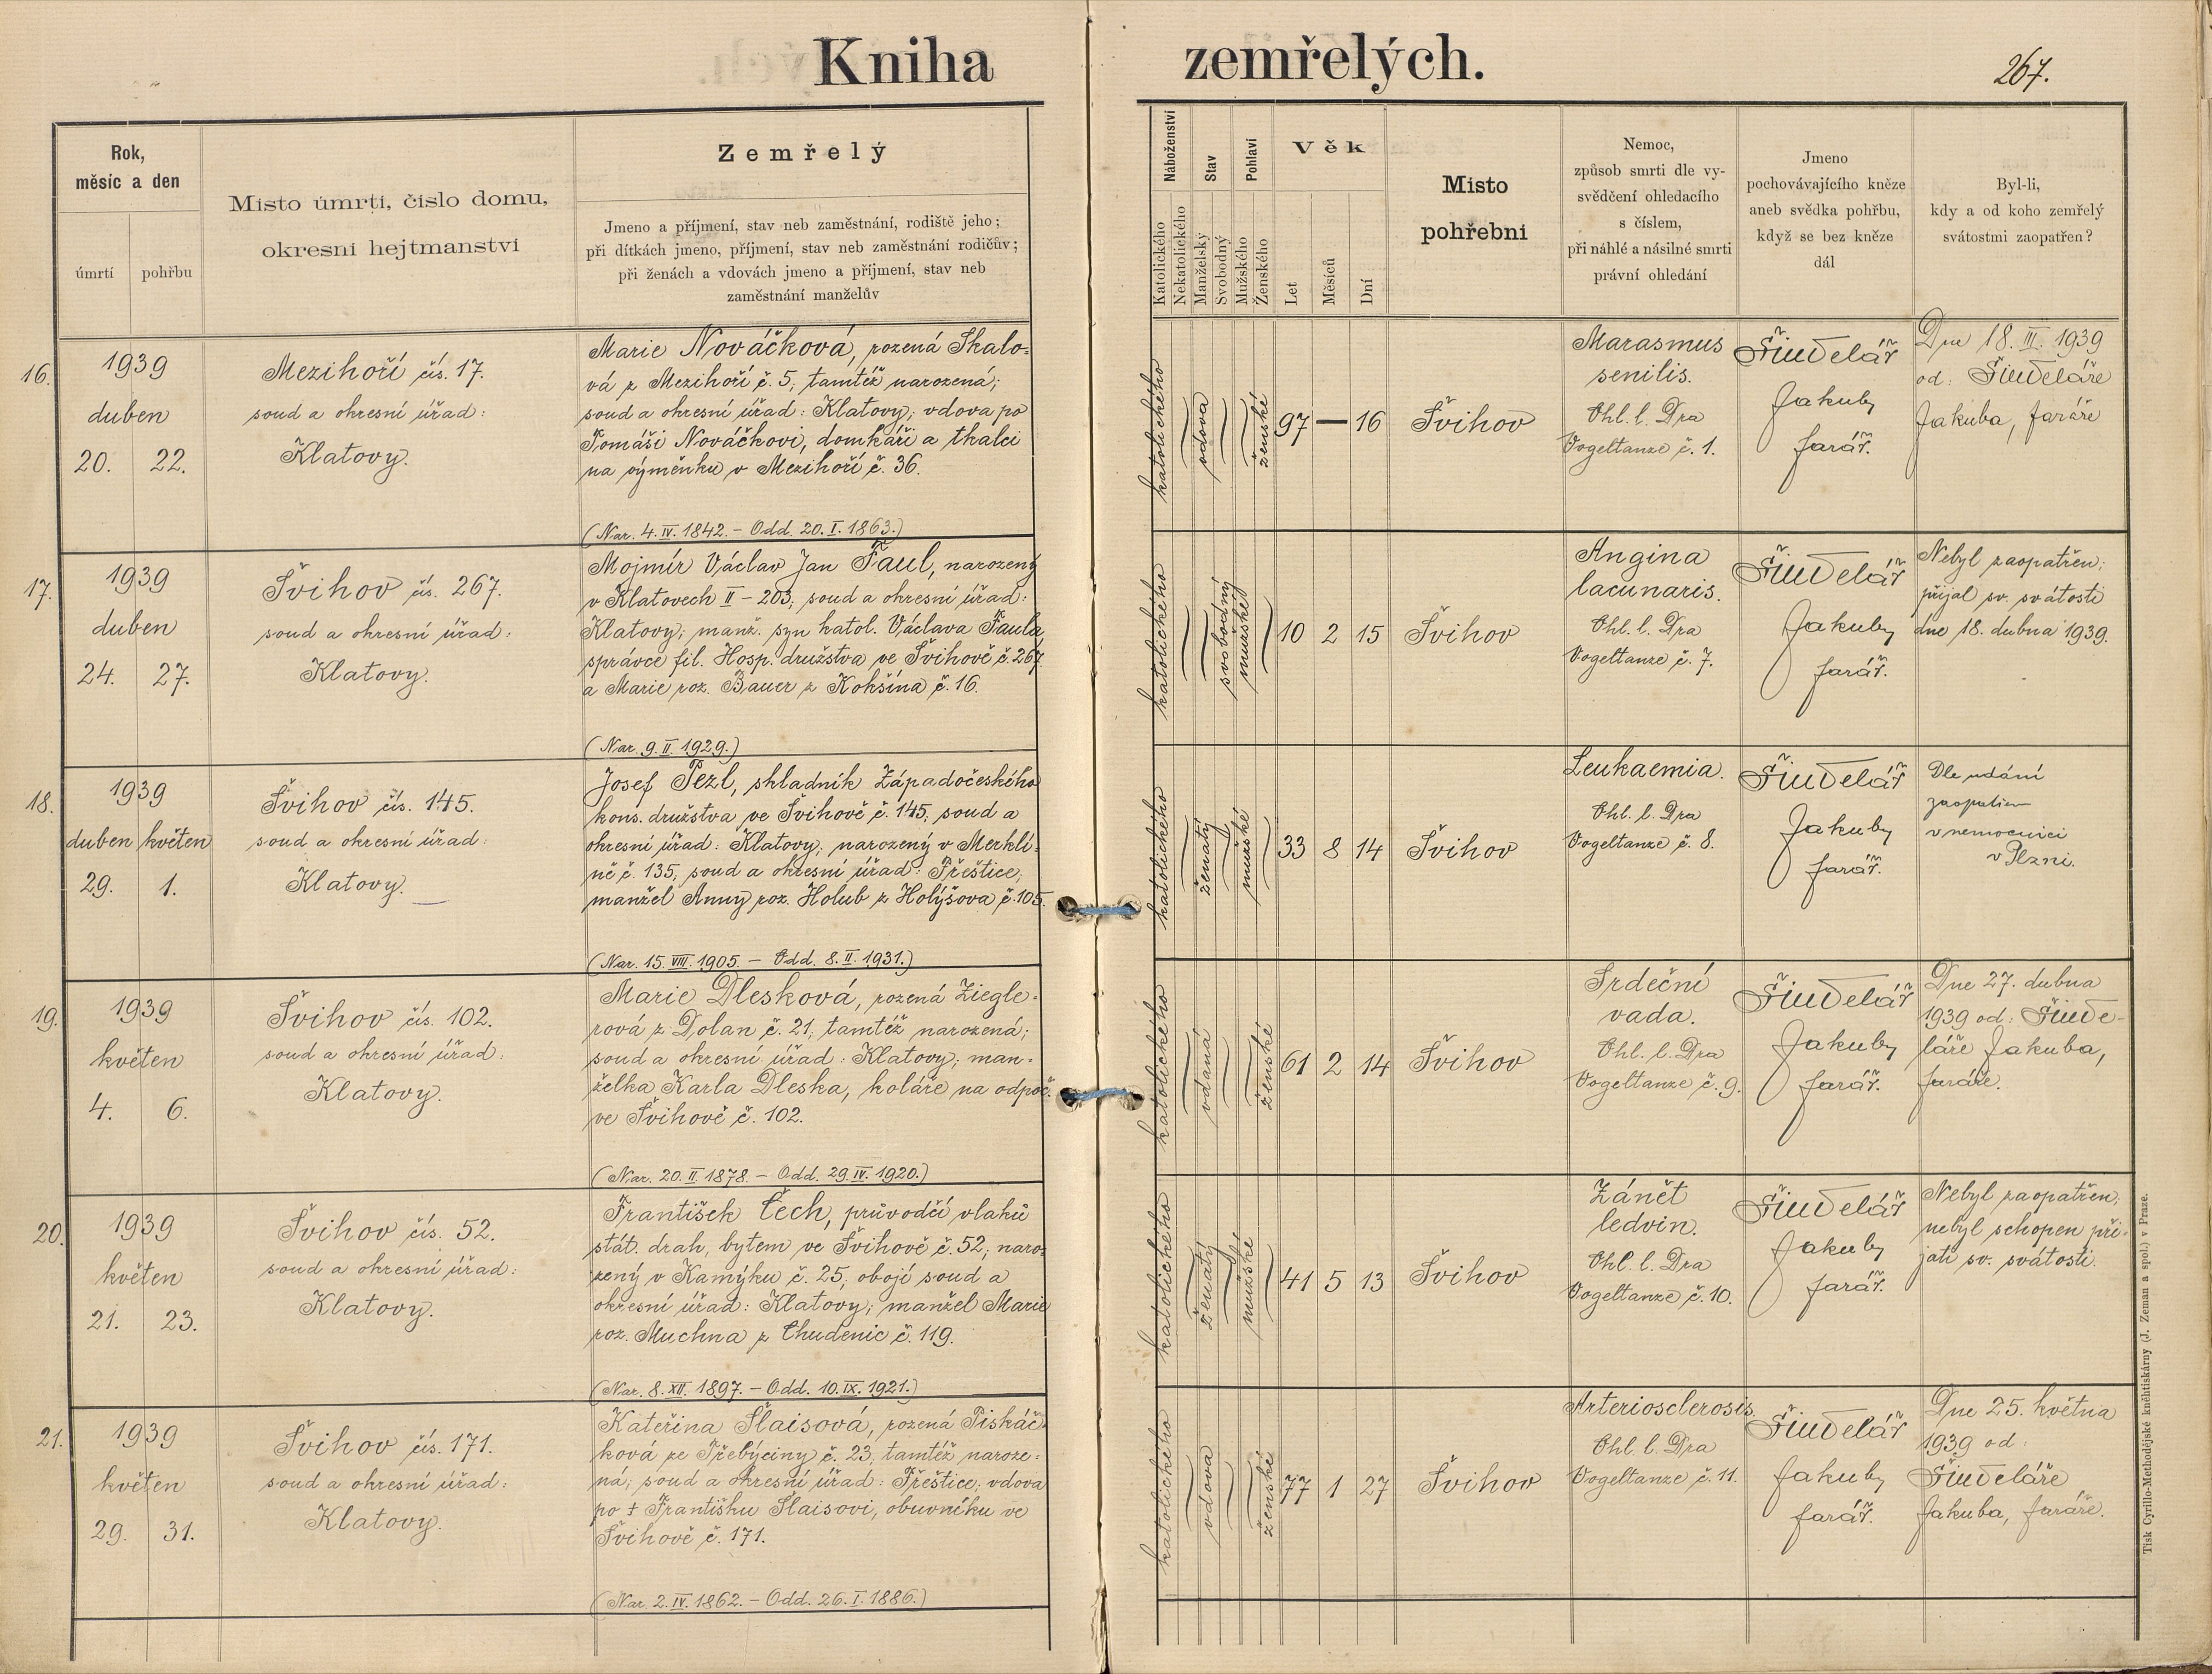 Kniha zemřelých.
267.
Rok,
měsíc a den
úmrtí
pohřbu
Místo úmrtí, číslo domu,
okresní hejtmanství
Zemřelý
Jmeno a příjmení, stav neb zaměstnání, rodiště jeho;
při dítkách jmeno, příjmení, stav neb zaměstnání rodičův;
při ženách a vdovách jmeno a příjmení, stav neb
zaměstnání manželův
Náboženství
Katolického
Nekatolického
Stav
Manželský
Svobodný
Pohlaví
Mužského
Ženského
Věk
Let
Měsíců
Dní
Místo
pohřební
Nemoc,
způsob smrti dle vy-
svědčení ohledacího
s číslem,
při náhlé a násilné smrti
právní ohledání
Jmeno
pochovávajícího kněze
aneb svědka pohřbu,
když se bez kněze
dál
Byl-li,
kdy a od koho zemřelý
svátostmi zaopatřen?
16.
1939
duben
20. 22.
Mezihoří čís. 17.
soud a okresní úřad:
Klatovy.
Marie Nováčková, rozená Skalo-
vá z Mezihoří č. 5; tamtéž narozená;
soud a okresní úřad: Klatovy; vdova po
Tomáši Nováčkovi, domkáři a tkalci
na výměnku v Mezihoří č. 36.
(Nar. 4. IV. 1842. – Odd. 20. I. 1863.)
katolického
vdova
ženské
97 — 16
Švihov
Marasmus
senilis.
Ohl. l. Dra
Vogeltanze č. 1.
Šindelář
Jakub,
farář.
Dne 18. III. 1939
od: Šindeláře
Jakuba, faráře
17.
1939
duben
24. 27.
Švihov čís. 267.
soud a okresní úřad:
Klatovy.
Mojmír Václav Jan Faul, narozený
v Klatovech II – 203; soud a okresní úřad:
Klatovy; manž. syn katol. Václava Faula,
správce fil. Hosp. družstva ve Švihově č. 267
a Marie roz. Bauer z Kokšína č. 16.
(Nar. 9. II. 1929.)
katolického
svobodný
mužské
10 2 15
Švihov
Angina
lacunaris.
Ohl. l. Dra
Vogeltanze č. 7.
Šindelář
Jakub,
farář.
Nebyl zaopatřen;
přijal sv. svátosti
dne 18. dubna 1939.
18.
1939
duben květen
29. 1.
Švihov čís. 145.
soud a okresní úřad:
Klatovy.
Josef Pezl, skladník Západočeského
kons. družstva ve Švihově č. 145; soud a
okresní úřad: Klatovy; narozený v Merklí-
ně č. 135; soud a okresní úřad: Přeštice;
manžel Anny roz. Holub z Holýšova č. 105.
(Nar. 15. VIII. 1905. – Odd. 8. II. 1931.)
katolického
ženatý
mužské
33 8 14
Švihov
Leukaemia.
Ohl. l. Dra
Vogeltanze č. 8.
Šindelář
Jakub,
farář.
Dle udání
zaopatřen
v nemocnici
v Plzni.
19.
1939
květen
4. 6.
Švihov čís. 102.
soud a okresní úřad:
Klatovy.
Marie Dlesková, rozená Ziegle-
rová z Dolan č. 21; tamtéž narozená;
soud a okresní úřad: Klatovy; man-
želka Karla Dleska, koláře na odpoč.
ve Švihově č. 102.
(Nar. 20. II. 1878. – Odd. 29. IV. 1920.)
katolického
vdaná
ženské
61 2 14
Švihov
Srdeční
vada.
Ohl. l. Dra
Vogeltanze č. 9.
Šindelář
Jakub,
farář.
Dne 27. dubna
1939 od: Šinde-
láře Jakuba,
faráře.
20.
1939
květen
21. 23.
Švihov čís. 52.
soud a okresní úřad:
Klatovy.
František Čech, průvodčí vlaků
stát. drah, bytem ve Švihově č. 52; naro-
zený v Kamýku č. 25; obojí soud a
okresní úřad: Klatovy; manžel Marie
roz. Muchna z Chudenic č. 119.
(Nar. 8. XII. 1897. – Odd. 10. IX. 1921.)
katolického
ženatý
mužské
41 5 13
Švihov
Zánět
ledvin.
Ohl. l. Dra
Vogeltanze č. 10.
Šindelář
Jakub,
farář.
Nebyl zaopatřen;
nebyl schopen při-
jati sv. svátosti.
21.
1939
květen
29. 31.
Švihov čís. 171.
soud a okresní úřad:
Klatovy.
Kateřina Šlaisová, rozená Piskáč-
ková ze Třebýciny č. 23; tamtéž naroze-
ná; soud a okresní úřad: Přeštice; vdova
po † Františku Šlaisovi, obuvníku ve
Švihově č. 171.
(Nar. 2. IV. 1862. – Odd. 26. I. 1886.)
katolického
vdova
ženské
77 1 27
Švihov
Arteriosclerosis.
Ohl. l. Dra
Vogeltanze č. 11.
Šindelář
Jakub,
farář.
Dne 25. května
1939 od:
Šindeláře
Jakuba, faráře.
Tisk Cyrillo-Methodějské knëhtiskárny (J. Zeman a spol.) v Praze.